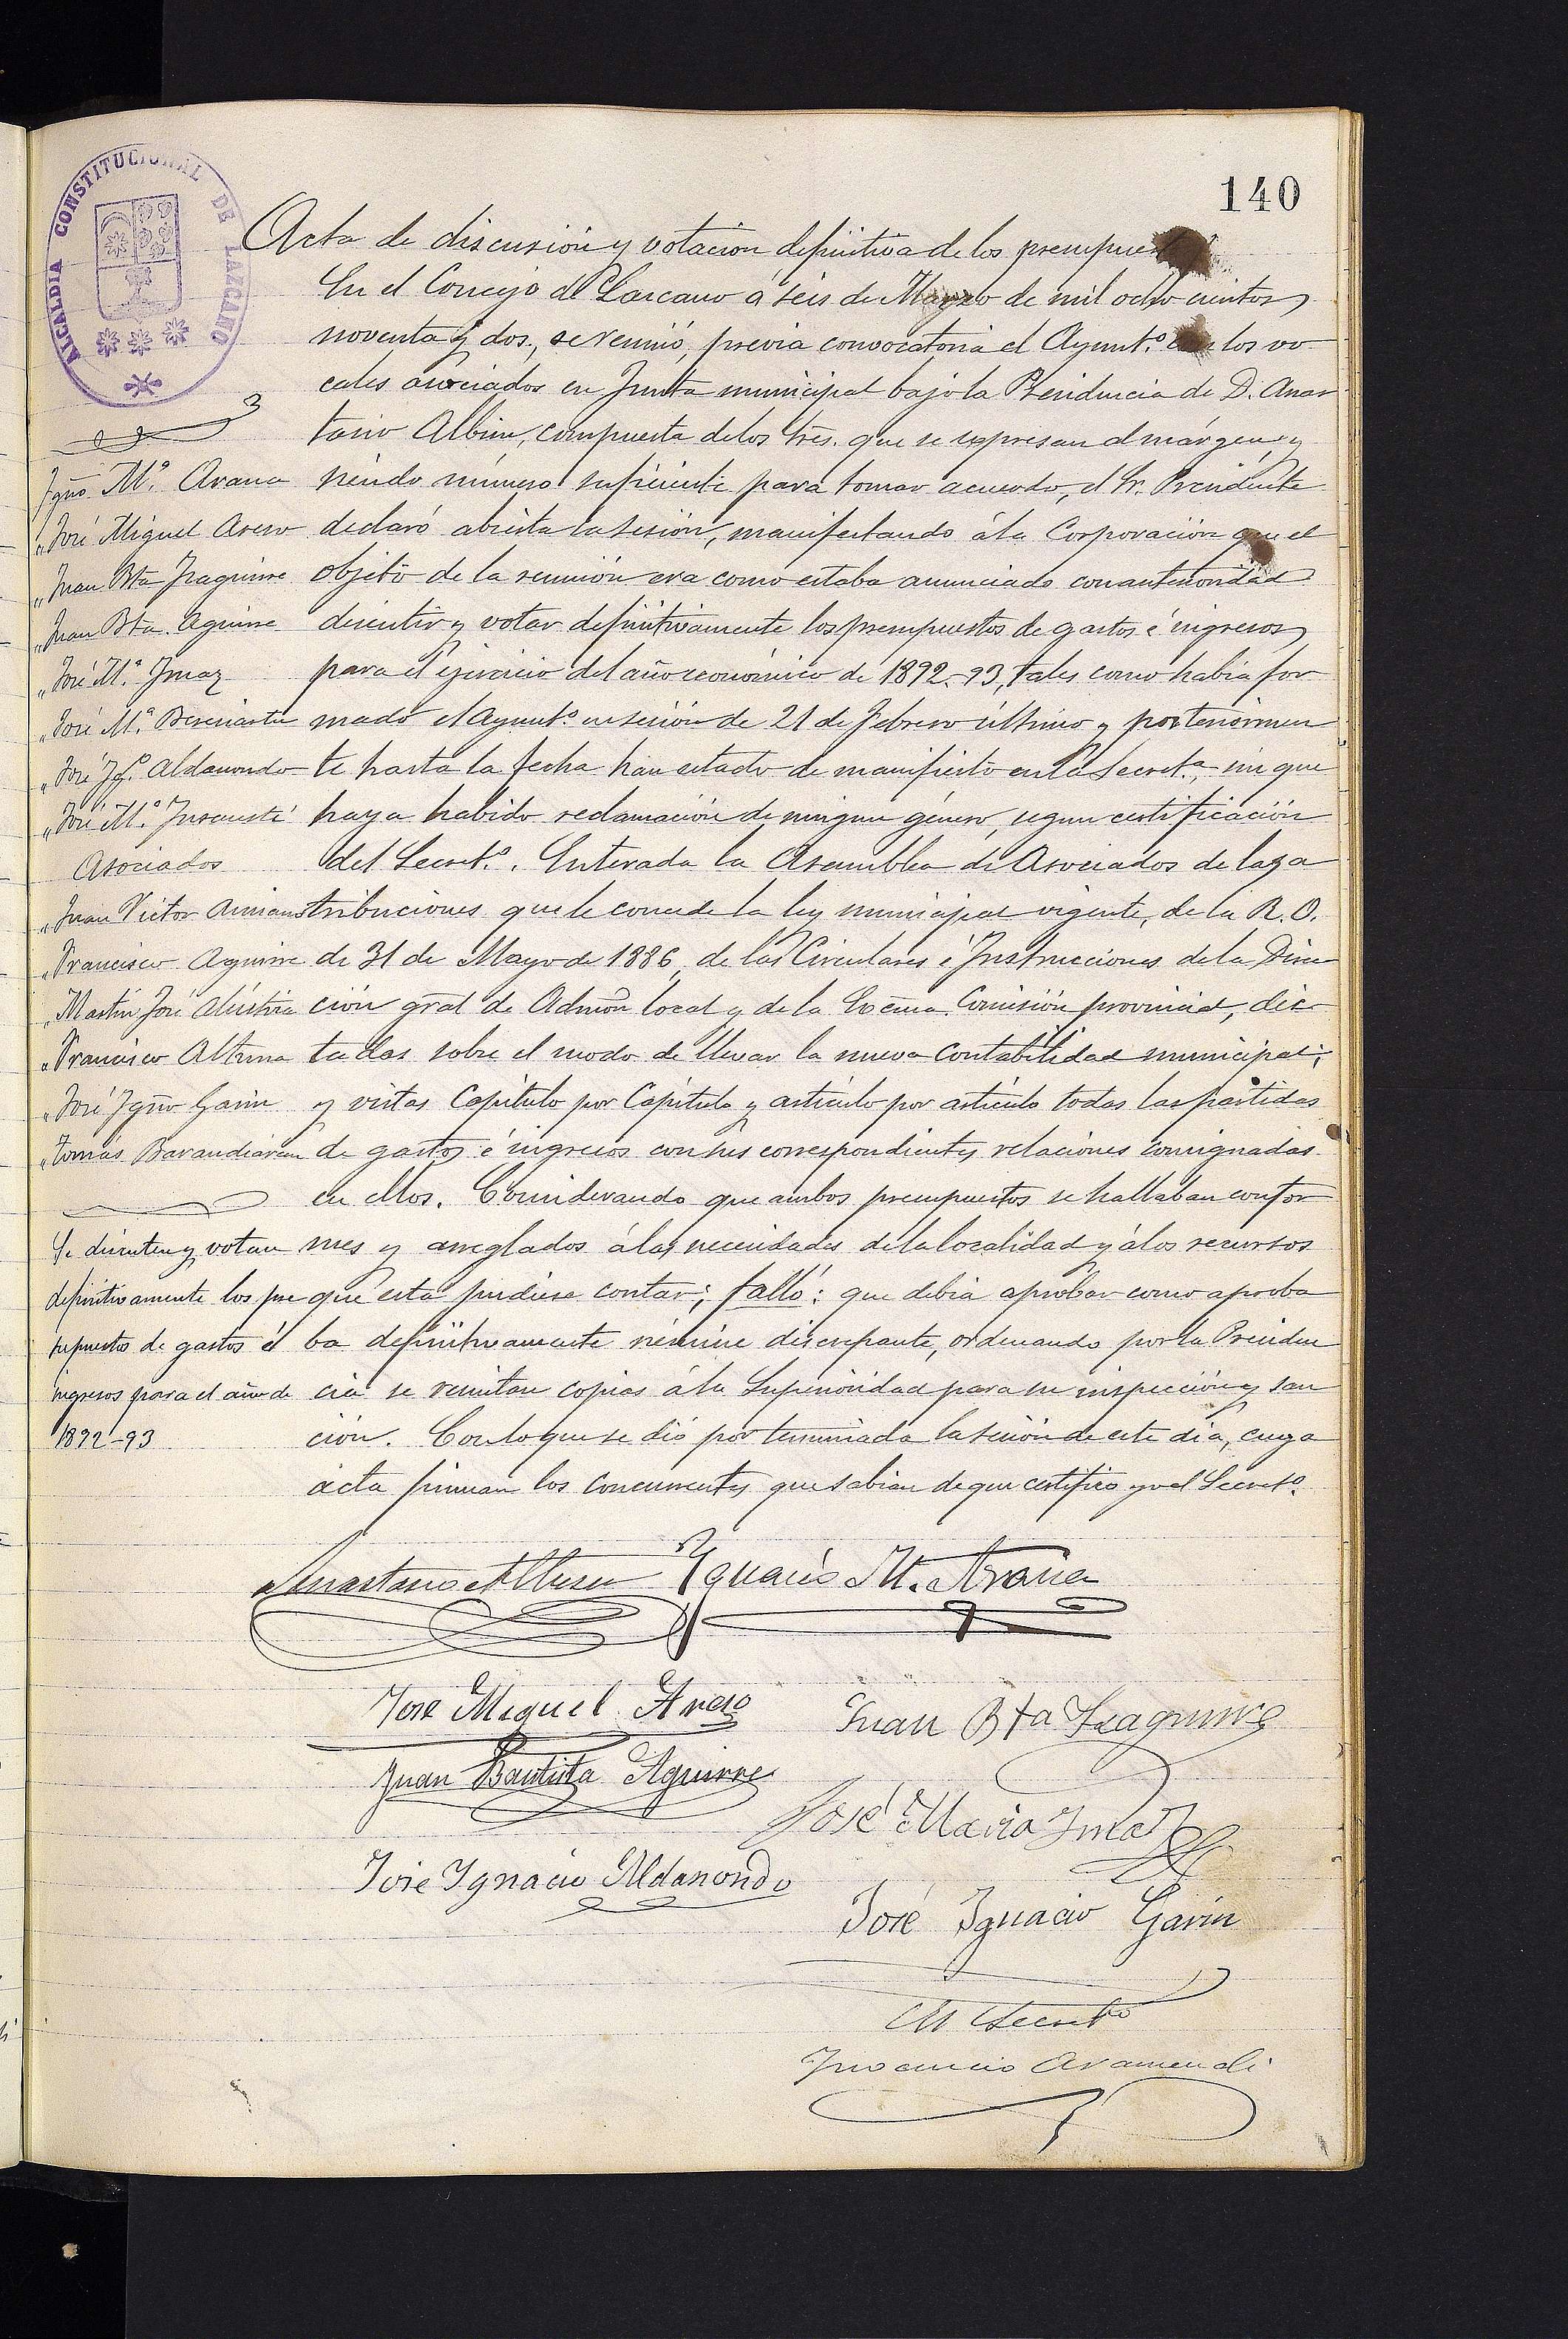 140
ALCALDIA CONSTITUCIONAL DE LAZCANO
Acta de discusión y votación definitiva de los presupuest
En el Concejo de Lazcano á seis de Marzo de mil ochocientos
noventa y dos, se reunió, previa convocatoria el Ayunt.º los vo
cales asociados en Junta municipal bajo la Presidencia de D. Anas
tasio Albisu, compuesta de los Sres. que se expresan al márgen, y
siendo número suficiente para tomar acuerdo, el Sr. Presidente
declaró abierta la sesión, manifestando á la Corporación que el
objeto de la reunión era como estaba anunciado con anterioridad
discutir y votar definitivamente los presupuestos de gastos é ingresos
para el ejercicio del año económico de 1892-93, tales como habia for
mado el Ayunt.º en sesión de 21 de Febrero último y posteriormen
te hasta la fecha han estado de manifiesto en la Secret.ª, sin que
haya habido reclamación de ningun género, segun certificación
del Secret.º. Enterada la Asamblea de Asociados de las a
tribuciones que le concede la ley municipal vigente, de la R. O.
de 31 de Mayo de 1886, de las Circulares é Instrucciones de la Direc
ción gral de Admon local y de la Excma. Comisión provincial, dic
tadas sobre el modo de llevar la nueva contabilidad municipal;
y vistas Capítulo por Capítulo y artículo por artículo todas las partidas
de gastos é ingresos con sus correspondientes relaciones consignadas
en ellos. Considerando que ambos presupuestos se hallaban confor
mes y arreglados á las necesidades de la localidad y á los recursos
que esta pudiese contar; falló: que debia aprobar como aproba
ba definitivamente némine discrepante, ordenando por la Presiden
cia se remitan copias á la Superioridad para su inspección y san
ción. Con lo que se dió por terminada la sesión de este dia, cuya
acta firman los concurrentes que sabian de que certifico yo el Secret.º
Igño. M.ª Arana
" José Miguel Areso
" Juan Bta Izaguirre
" Juan Bta. Aguirre
" José M.ª Imaz
" José M.ª Bereciartu
" José Ig.º Aldanondo
" José M.ª Insausti
Asociados
" Juan Victor
" Francisco Aguirre
" Martin José Alustiza
" Francisco Altuna
" José Igño Garin
" Tomás Barandiarán
Se discuten y votan
definitivamente los pre
supuestos de gastos é
ingresos para el año de
1892-93
Anastasio Albisu Ygnacio M. Arana
José Miguel Areso
Juan Bta Izaguirre
Juan Bautista Aguirre
José Maria Imaz
José Ygnacio Aldanondo
José Ignacio Garin
El Secret.º
Inocencio Aramendi